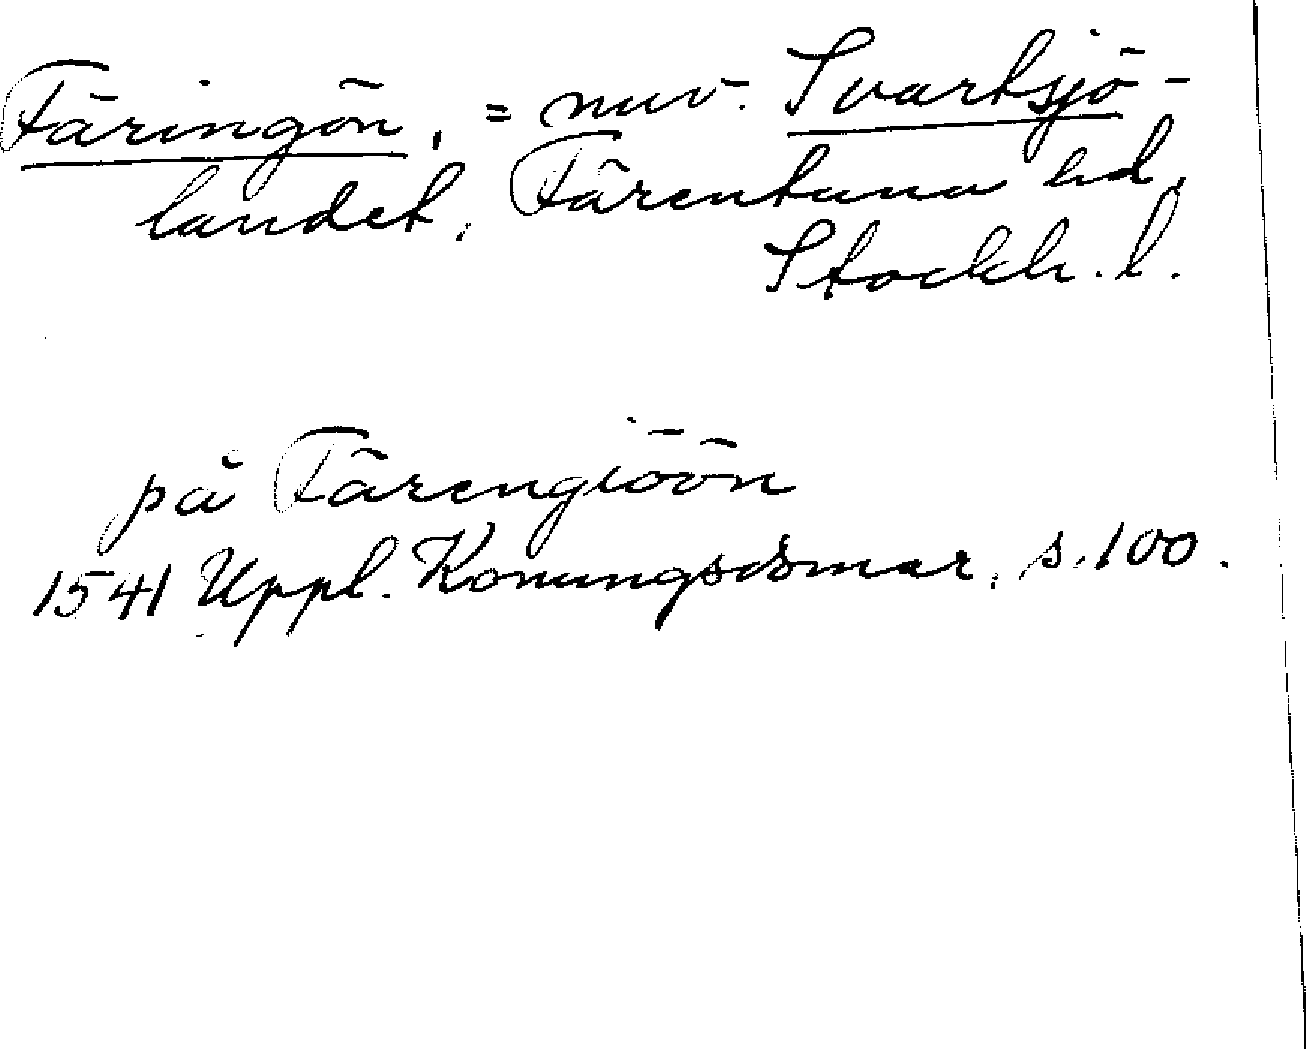 Färingön, = nuv. Svartsjö-
landet, Färentuna hd,
Stockh. l.
på Färengiöön
1541 Uppl. Konungsdomar, s. 100.